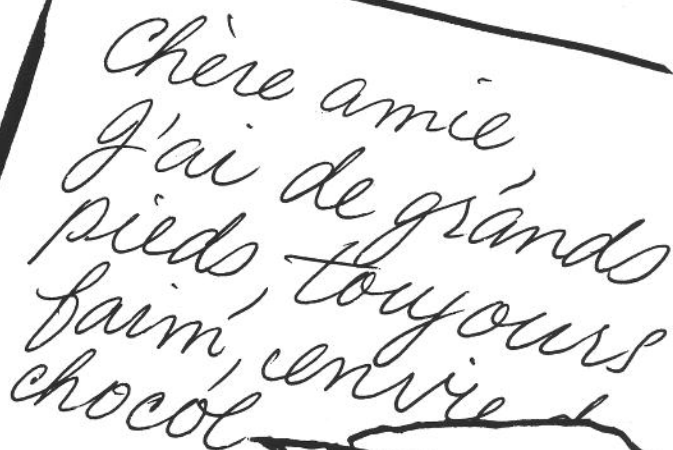 Chère amie,
J'ai de grands
pieds, toujours
faim, envie d
chocol